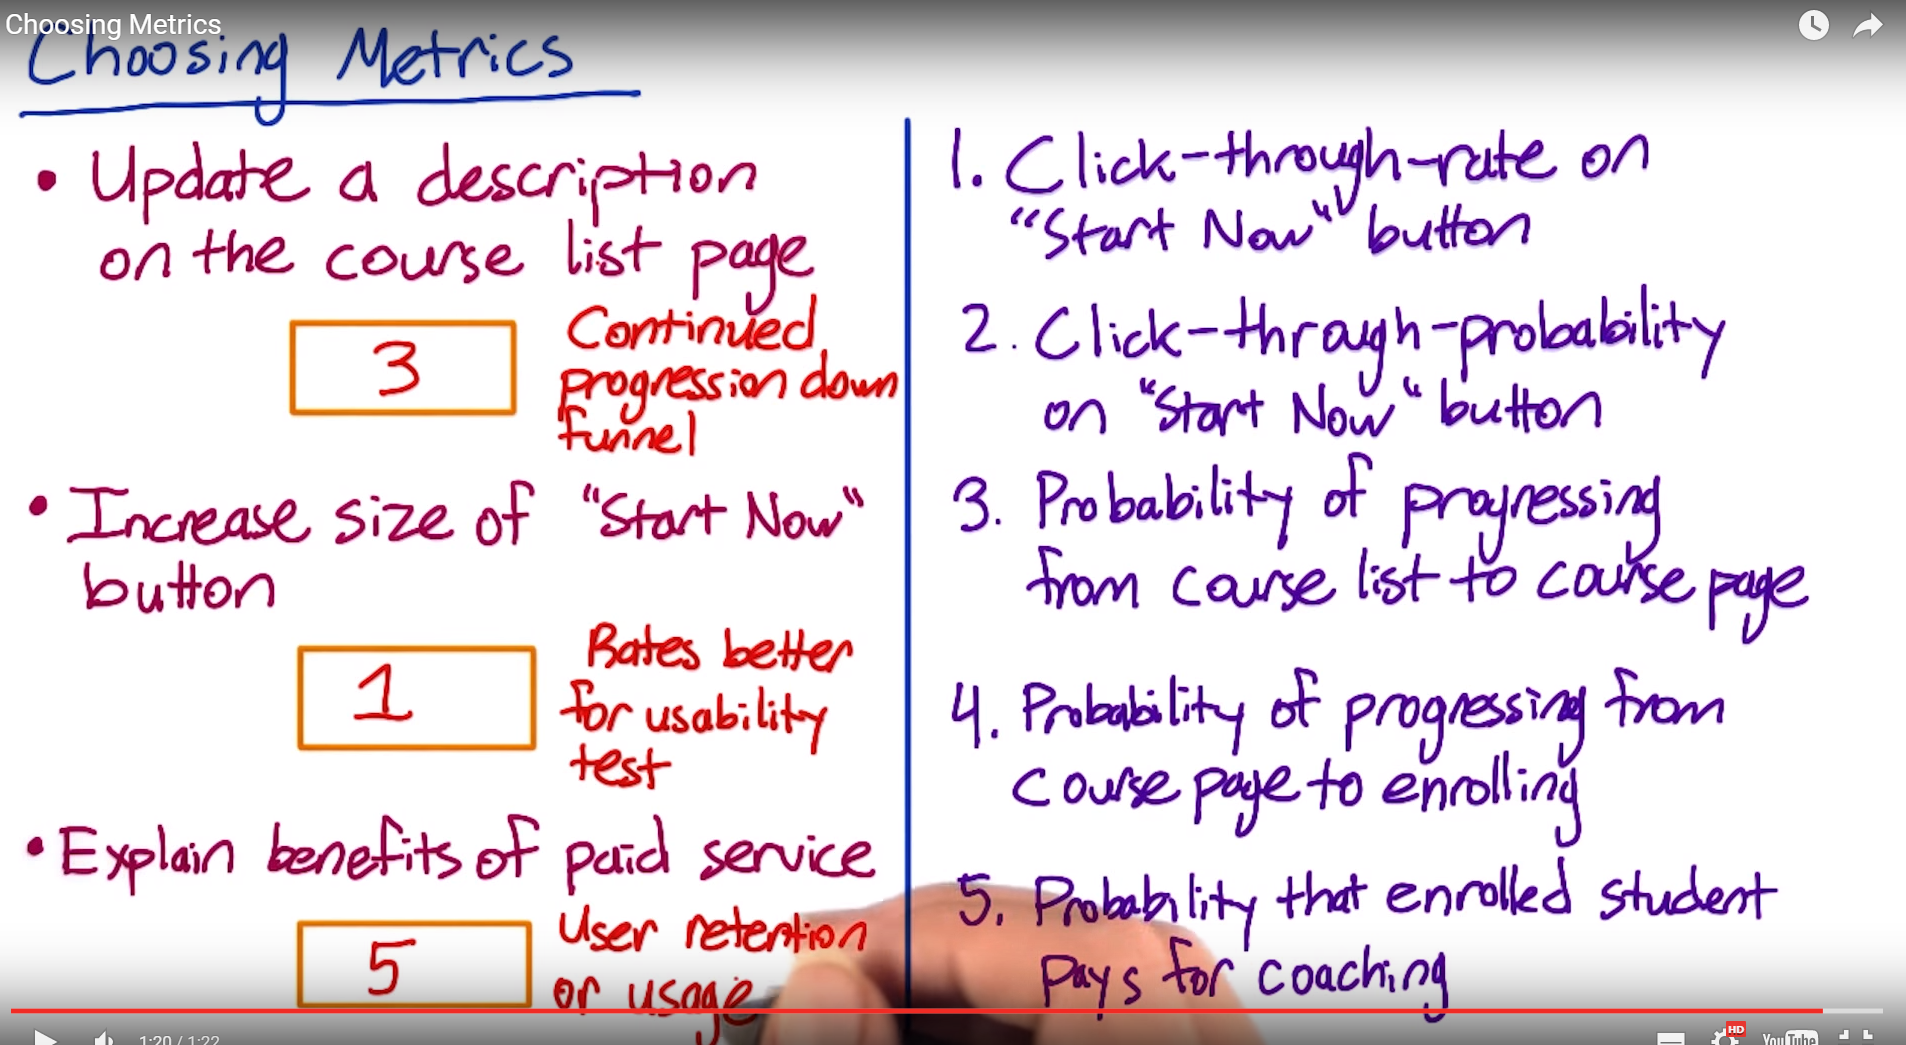 Choosing Metrics
Choosing Metrics
• Update a description
on the course list page
3
Continued
progression down
funnel
• Increase size of "Start Now"
button
1
Rates better
for usability
test
• Explain benefits of paid service
5
User retention
or usage
1. Click-through-rate on
"Start Now" button
2. Click-through-probability
on "Start Now" button
3. Probability of progressing
from course list to course page
4. Probability of progressing from
course page to enrolling
5. Probability that enrolled student
pays for coaching
1:20 / 1:22
HD
YouTube